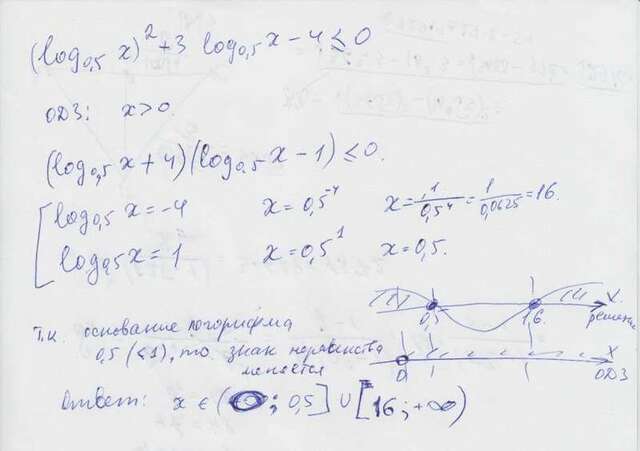 (log₀,₅ x)² + 3 log₀,₅ x − 4 ≤ 0
ОДЗ: x > 0.
(log₀,₅ x + 4)(log₀,₅ x − 1) ≤ 0.
log₀,₅ x = −4 x = 0,5⁻⁴ x = 1/0,5⁴ = 1/0,0625 = 16.
log₀,₅ x = 1 x = 0,5¹ x = 0,5.
0,5 16 x
решение
т.к. основание логорифма
0,5 (<1), то знак неравенства
меняется
0 x
ОДЗ
Ответ: x ∈ ( ; 0,5] ∪ [16; +∞)